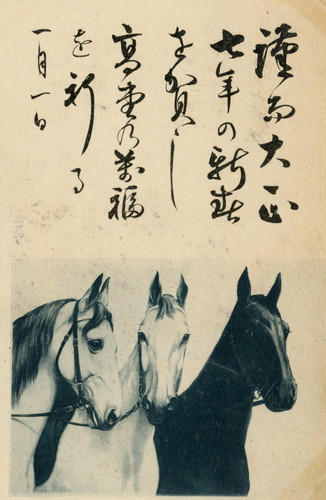 謹而大正
七年の新春
を賀し
高堂乃萬福
を祈る
一月一日